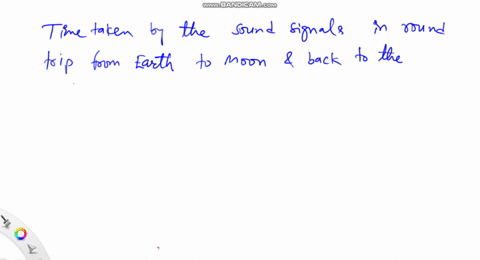 www.BANDICAM.com
Time taken by the sound signals in round
trip from Earth to Moon & back to the